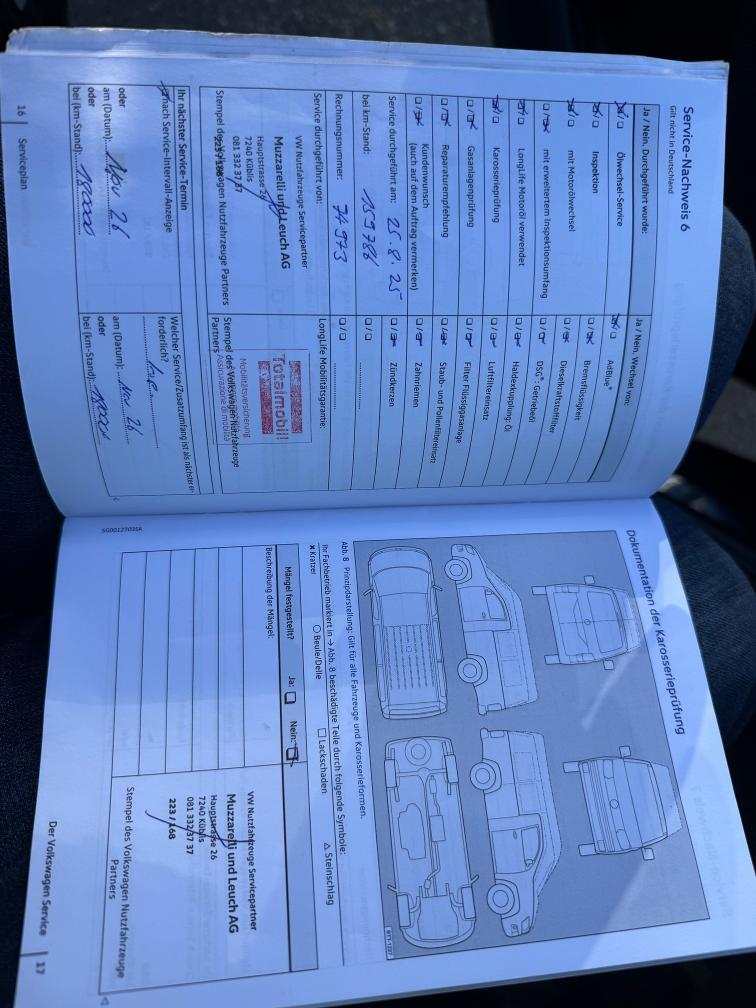 Service-Nachweis 6
Gilt nicht in Deutschland
Ja / Nein. Durchgeführt wurde:
Ölwechsel-Service
Inspektion
mit Motorölwechsel
mit erweitertem Inspektionsumfang
LongLife Motoröl verwendet
Karosserieprüfung
Gasanlagenprüfung
Reparaturempfehlung
Kundenwunsch
(auch auf dem Auftrag vermerken)
Service durchgeführt am: 25.8.25
bei km-Stand: 159786
Rechnungsnummer: 74973
Service durchgeführt von:
VW Nutzfahrzeuge Servicepartner
Muzzarelli und Leuch AG
Hauptstrasse 26
7240 Küblis
081 332 37 37
Stempel des Volkswagen Nutzfahrzeuge Partners
Ja / Nein. Wechsel von:
AdBlue®
Bremsflüssigkeit
Dieselkraftstofffilter
DSG®: Getriebeöl
Haldexkupplung: Öl
Luftfiltereinsatz
Filter Flüssiggasanlage
Staub- und Pollenfiltereinsatz
Zahnriemen
Zündkerzen
LongLife Mobilitätsgarantie:
Totalmobil!
Mobilitätsversicherung
Assicurazione di mobilità
Stempel des Volkswagen Nutzfahrzeuge
Partners
Ihr nächster Service-Termin
nach Service-Intervall-Anzeige
oder
am (Datum): Nov 26
oder
bei (km-Stand): 180000
Welcher Service/Zusatzumfang ist als nächster er-
forderlich?
am (Datum): Nov 26
oder
bei (km-Stand):
16 Serviceplan
Dokumentation der Karosserieprüfung
BTT-1227
Abb. 8 Prinzipdarstellung: Gilt für alle Fahrzeuge und Karosserieformen.
Ihr Fachbetrieb markiert in → Abb. 8 beschädigte Teile durch folgende Symbole:
× Kratzer ○ Beule/Delle □ Lackschaden △ Steinschlag
Mängel festgestellt? Ja: Nein:
Beschreibung der Mängel:
VW Nutzfahrzeuge Servicepartner
Muzzarelli und Leuch AG
Hauptstrasse 26
7240 Küblis
081 332 37 37
223 / 168
Stempel des Volkswagen Nutzfahrzeuge
Partners
SG0012703SA
Der Volkswagen Service 17